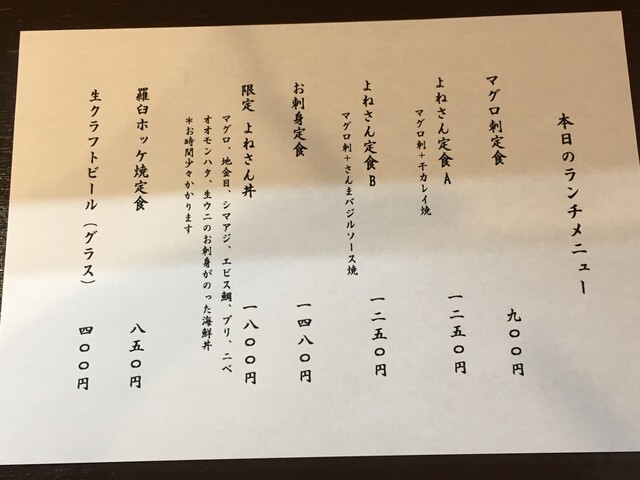 本日のランチメニュー
マグロ刺定食 九〇〇円
よねさん定食A 一二五〇円
マグロ刺+干カレイ焼
よねさん定食B 一二五〇円
マグロ刺+さんまバジルソース焼
お刺身定食 一四八〇円
限定 よねさん丼 一八〇〇円
マグロ、地金目、シマアジ、エビス鯛、ブリ、ニベ
オオモンハタ、生ウニのお刺身がのった海鮮丼
*お時間少々かかります
羅臼ホッケ焼定食 八五〇円
生クラフトビール(グラス) 四〇〇円